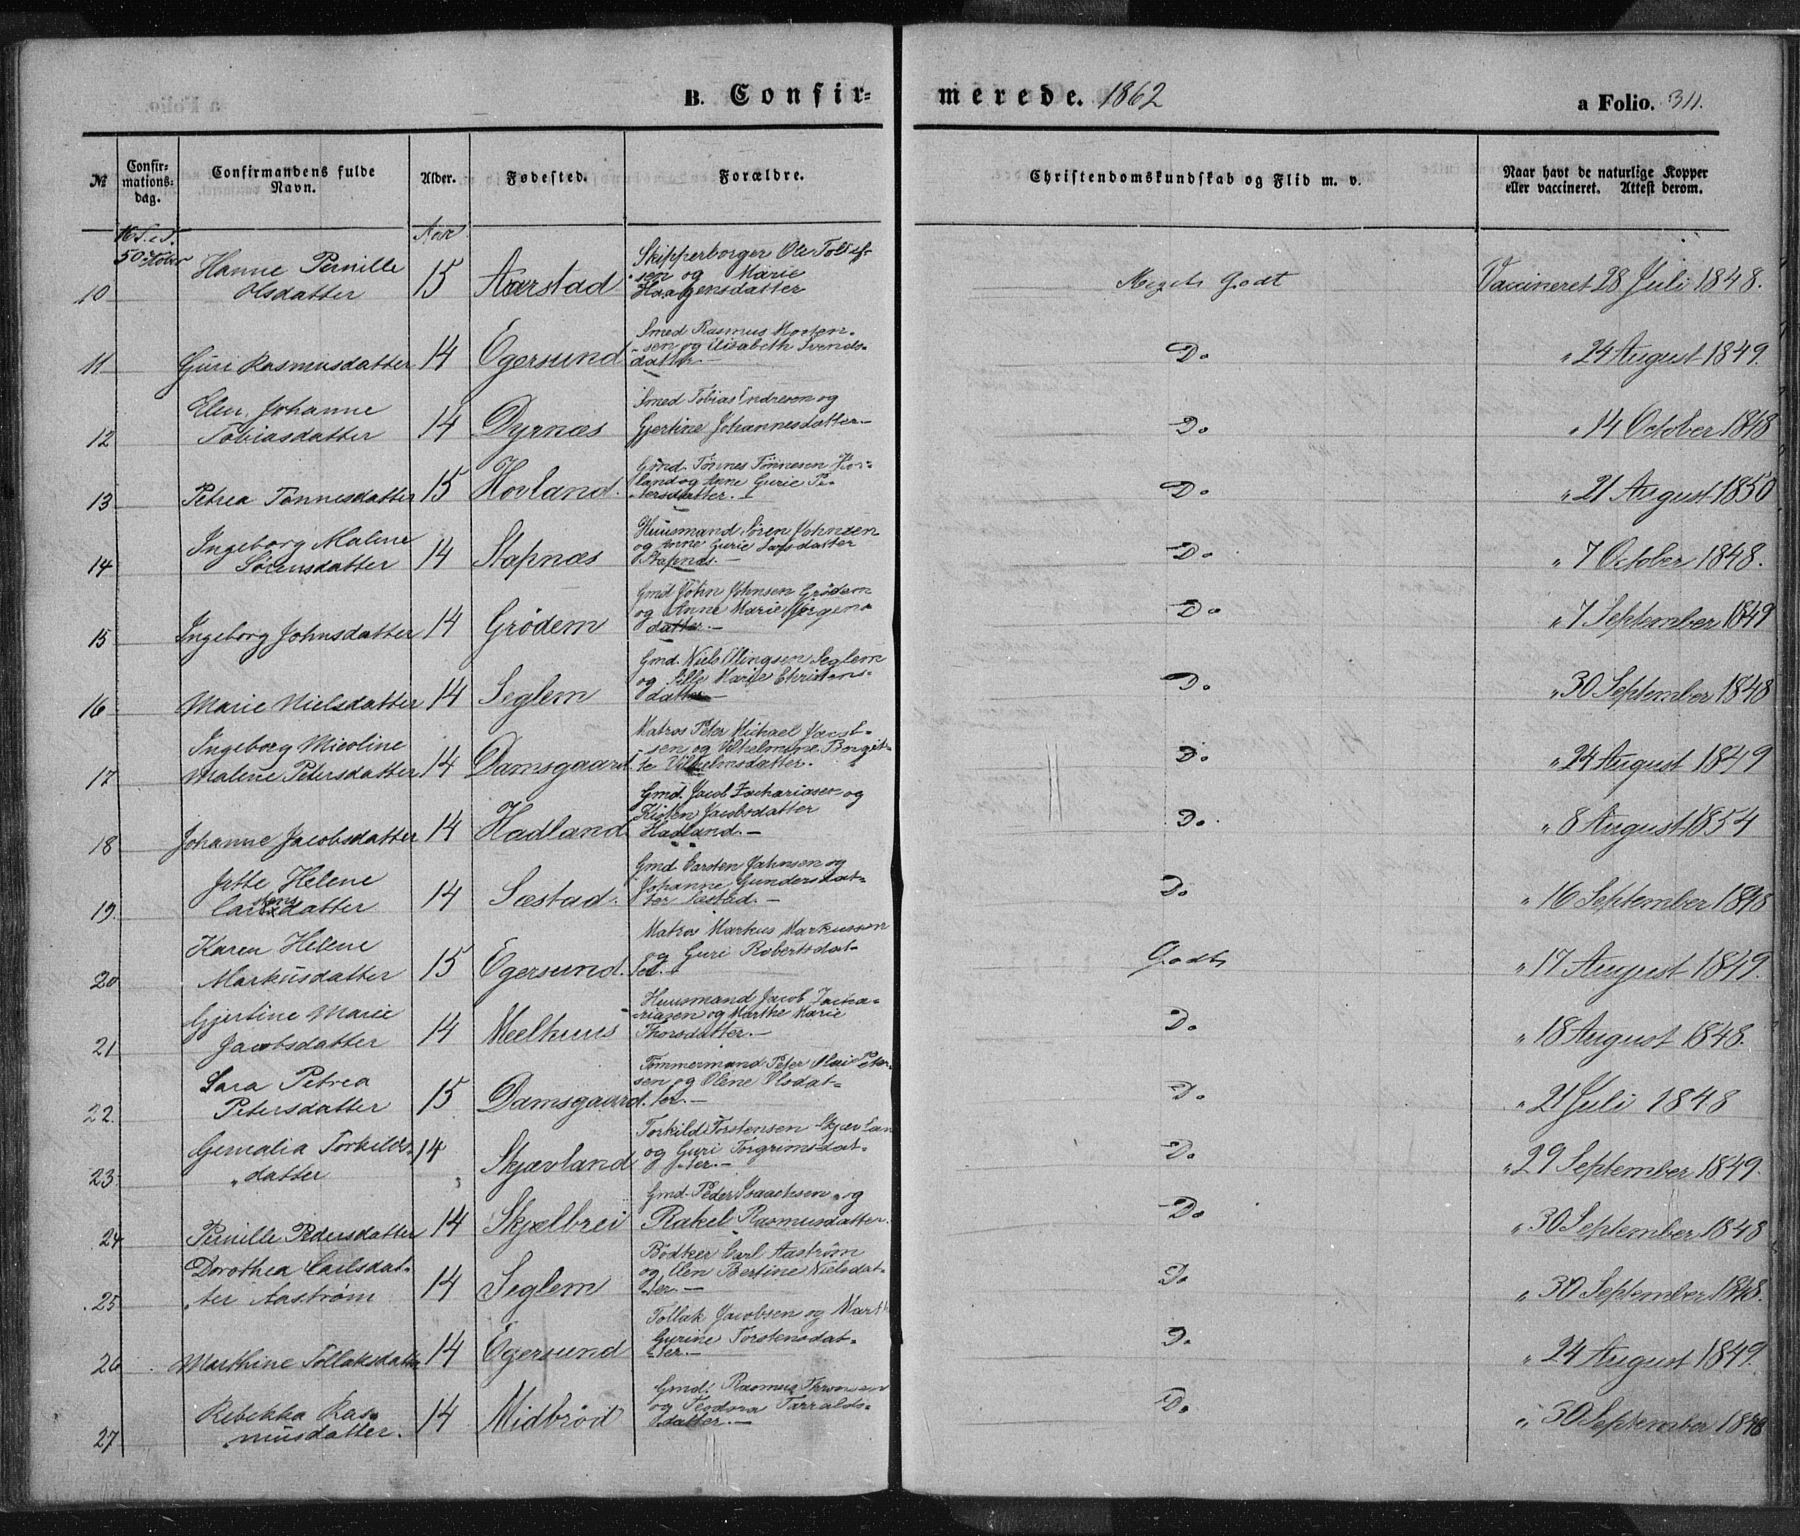 B. Confir- merede. 1862 a Folio. 311.
№ Confir-mations-dag. Confirmandens fulde Navn. Alder. Fødested. Forældre. Christendomskundskab og Flid m. v. Naar havt de naturlige Kopper eller vaccineret. Attest derom.
Aar
10 Hanne Pernille Olsdatter 15 Aarstad Skipperborger Ole Tollef-sen og Marie Haagensdatter Meget Godt Vaccineret 28 Juli 1848.
11 Guri Rasmusdatter 14 Egersund Smed Rasmus Morten-sen og Elisabeth Svends-datter Do „ 24 August 1849.
12 Elen Johanne Tobiasdatter 14 Dyrnæs Smed Tobias Endresen og Gjertine Johannesdatter Do „ 14 October 1848
13 Petrea Tønnesdatter 15 Hovland. Gmd. Tønnes Tønnesen Hov-land og Anne Gurie Pe-tersdatter. Do „ 21 August 1850
14 Ingeborg Malene Sørensdatter 14 Stapnæs Huusmand Søren Johnsen og Anne Gurie Larsdatter Stapnæs. Do „ 7 October 1848.
15 Ingeborg Johnsdatter 14 Grødem Gmd John Johnsen Grødem og Anne Marie Jørgens-datter. Do „ 7 September 1849
16 Marie Nielsdatter 14 Seglem Gmd. Niels Ellingsen Seglem og Sille Marie Christens-datter Do „ 30 September 1848
17 Ingeborg Nicoline Malene Petersdatter 14 Damsgaard Matros Peter Michael Jacob-sen og Vilhelmine Borgit-te Vilhelmsdatter. Do „ 24 August 1849
18 Johanne Jacobsdatter 14 Hadland Gmd. Jacob Zachariasen og Kisten Jacobsdatter Hadland. Do. „ 8 August 1854
19. Jitte Helene Carstensdatter 14 Sæstad. Gmd Carsten Jahnsen og Johanne Gundersdat-ter Sæstad. Do „ 16 September 1848
20 Karen Helene Markusdatter 15 Egersund. Matros Markus Markussen og Guri Robertsdat-ter. Godt „ 17 August 1849.
21 Gjertine Marie Jacobsdatter 14 Meelhuus Huusmand Jacob Zacha-riasen og Marthe Marie Thorsdatter. Do „ 18 August 1848.
22. Sara Petrea Petersdatter 15 Damsgaard. Tømmermand Peter Olai Peter-sen og Olene Olsdat-ter. Do „ 21 Juli 1848
23 Gunalia Torkilds-datter 14 Skjævland Torkild Torstensen Skjævland og Guri Torgrimsdat-ter. Do „ 29 September 1849.
24 Pernille Pedersdatter 14 Skjælbrei Gmd. Peder Isaachsen og Rakel Rasmusdatter. Do „ 30 September 1848
25 Dorothea Carlsdat-ter Aastrøm 14 Seglem Bødker Carl Aastrøm og Elen Bertine Nielsdat-ter. Do „ 30 September 1848.
26 Marthine Tollaksdatter 14 Egersund Tollak Jacobsen og Marthe Gurine Torstensdat-ter. Do „ 24 August 1849.
27 Rebekka Ras-musdatter. 14 Midbrød Gmd. Rasmus Thronsen og Teodora Tarralds-datter. Do „ 30 September 1848